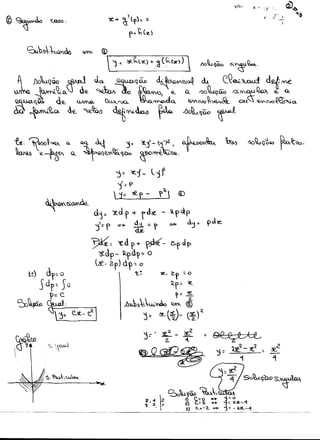 ② Segundo caso: x + g'(p) = 0
p = h(x)
Substituindo em ①
y = xh(x) + g(h(x)) solução singular
A solução geral da equação diferencial de Clairaut define
uma família de retas do plano, e a solução singular é a
equação de uma curva chamada envolvente ou envoltória
da família de retas definidas pela solução geral.
Ex. Resolva a eq. dif y = xy' - (y')², apresentar três soluções particu-
lares e fazer a representação geométrica.
y = xy' - (y')²
y' = p
y = xp - p² ①
diferenciando
dy = xdp + pdx - 2pdp
y' = p ⇒ dy/dx = p ⇒ dy = pdx
pdx = xdp + pdx - 2pdp
xdp - 2pdp = 0
(x - 2p)dp = 0
1º) dp = 0
∫dp = ∫0
p = c
Solução Geral:
y = cx - c²
2º x - 2p = 0
2p = x
p = x/2
Substituindo em ①
y = x(x/2) - (x/2)²
y = x²/2 - x²/4
y = 2x² - x²/4 = x²/4
y = x²/4 Solução Singular
Gráfico
S. Particular
Solução Particular